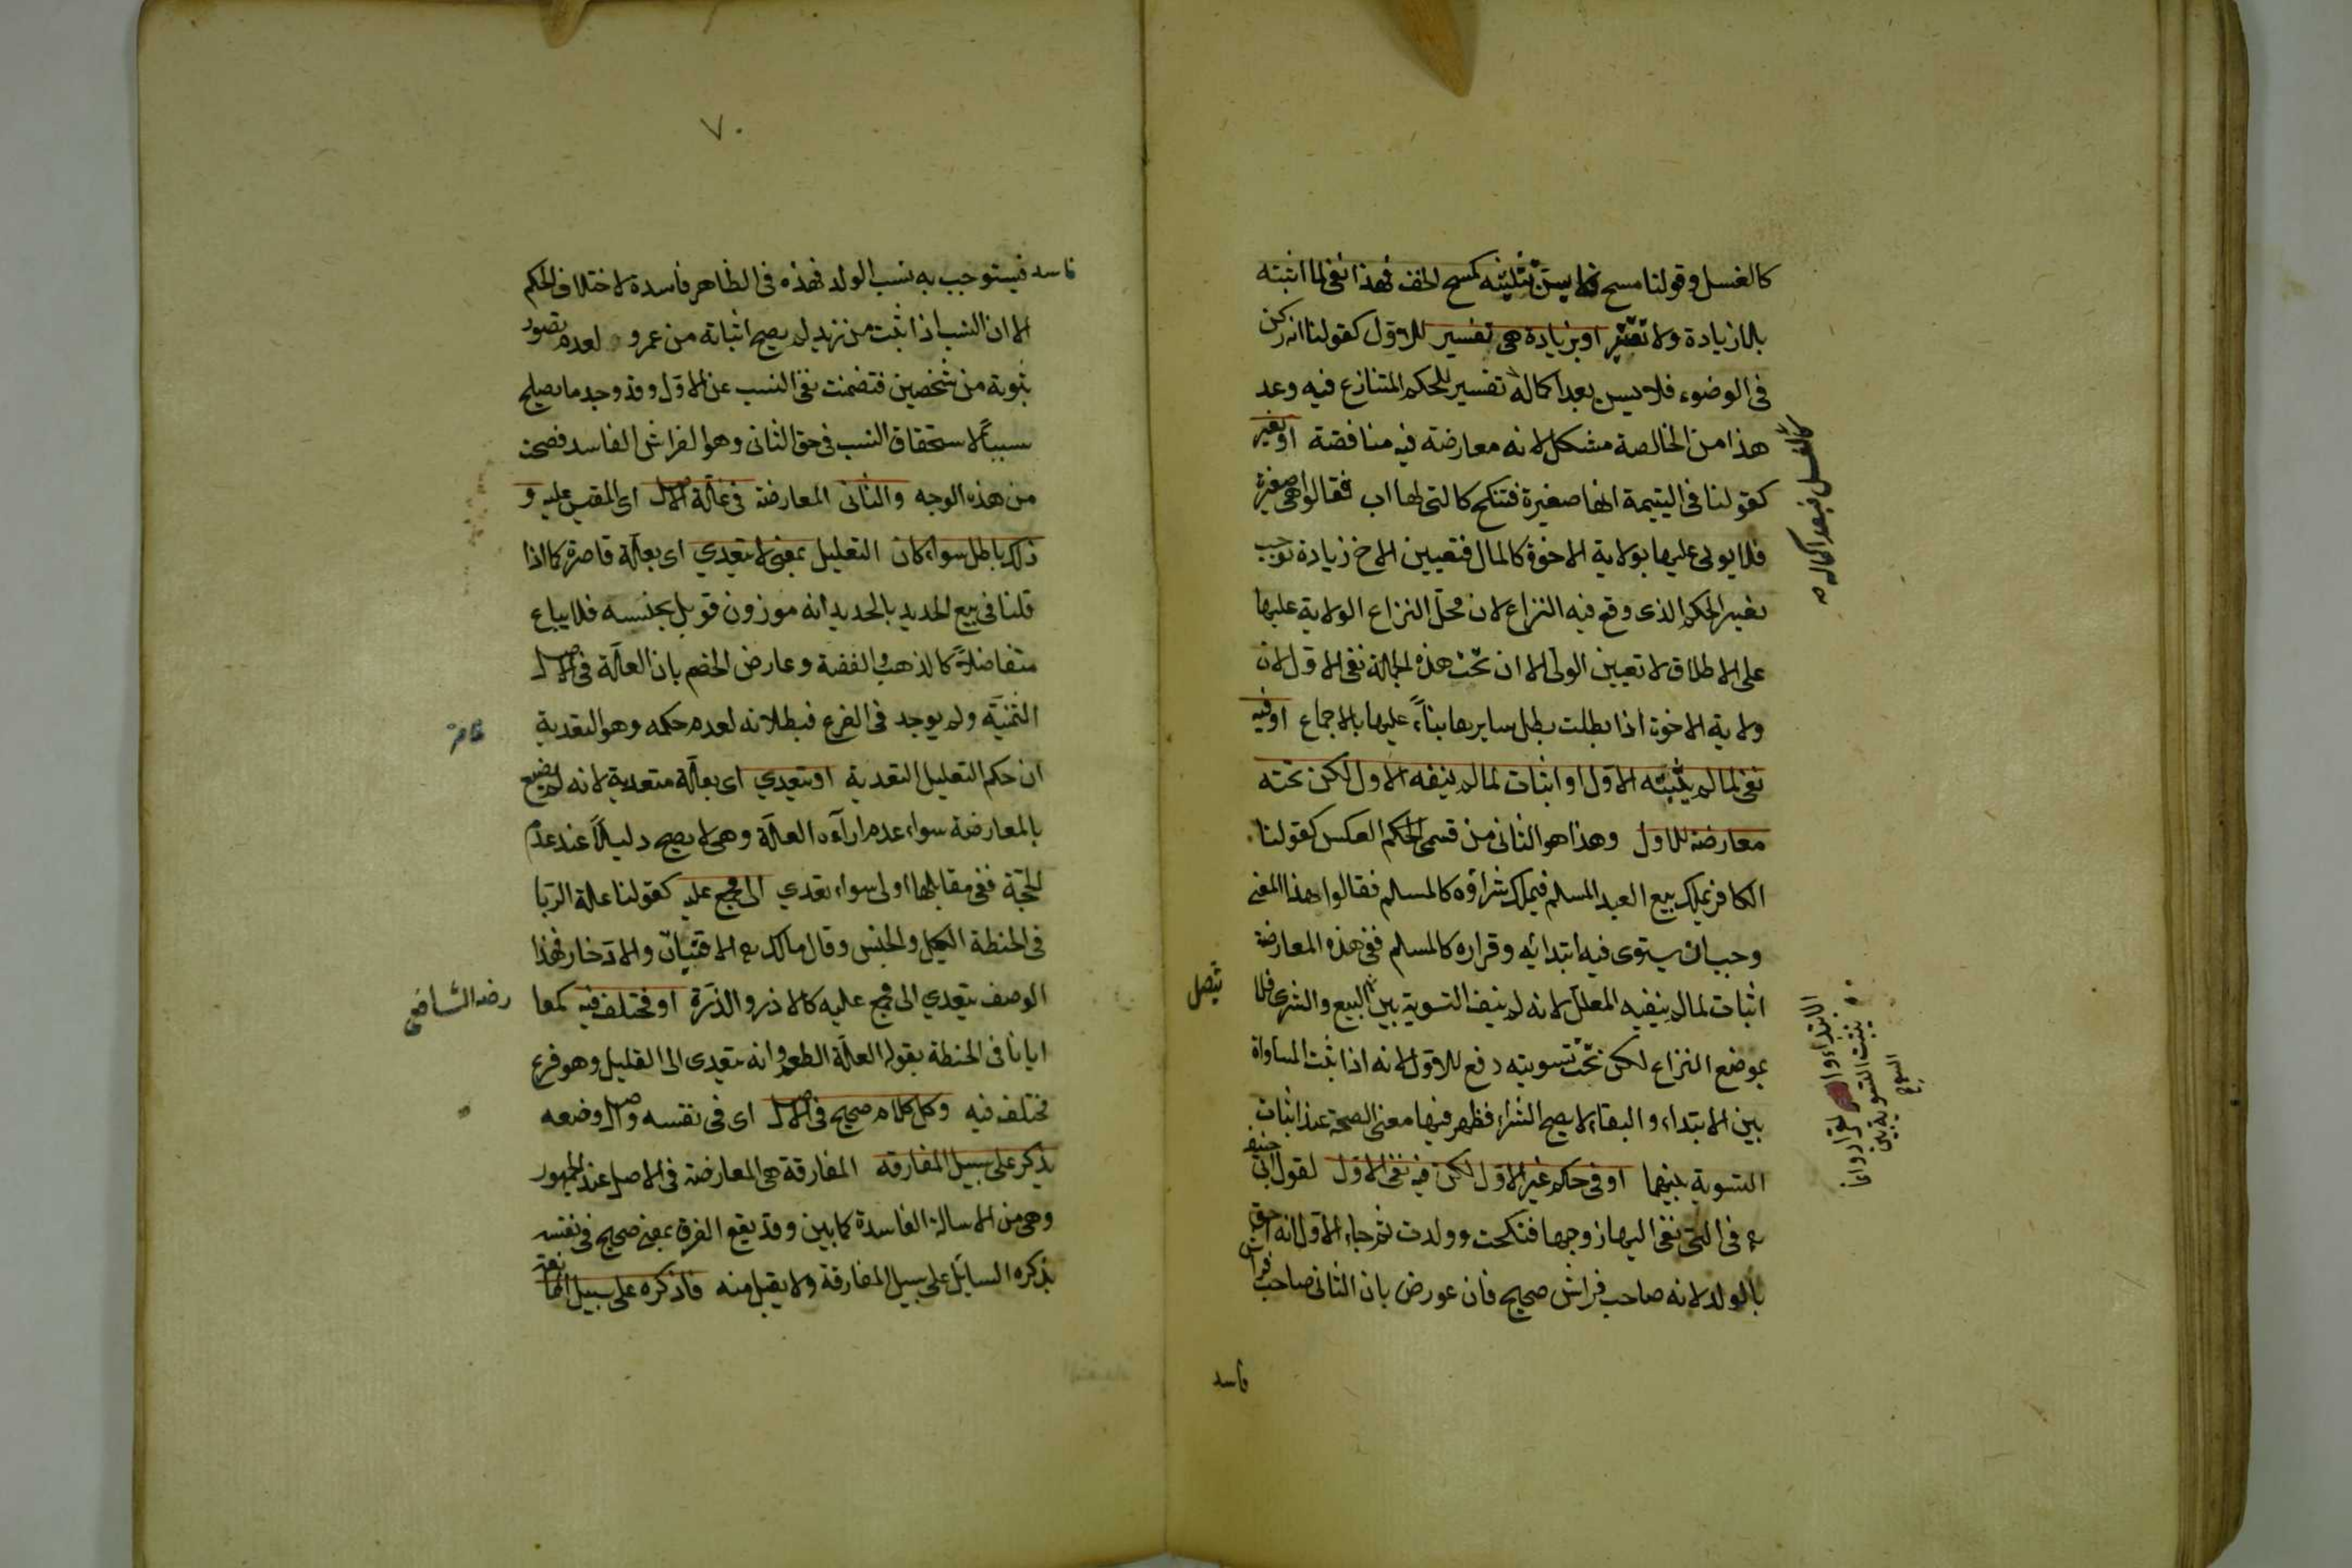 كالغسل وقولنا مسح فلا يسن تثليثه كمسح الخف فهذا نفى لما اثبته
بلا زيادة ولا تغيير او بزيادة هى تفسير للاول كقولنا انه ركن
فى الوضوء فلا يسن بعد اكماله تفسير للحكم المتنازع فيه وعد
هذا من الخالصة مشكل لانه معارضة فيه مناقضة او تغير
كقولنا فى اليتيمة انها صغيرة فتنكح كالتى لها اب فقالوا هى صغيرة
فلا يولى عليها بولاية الاخوة كالمال فتعيين الاخ زيادة توجب
تغير الحكم الذى وقع فيه النزاع لان محل النزاع الولاية عليها
على الاطلاق لا تعيين الولى الا ان تحت هذه الجملة نفى الاول لان
ولاية الاخوة اذا بطلت بطل سايرها بناءً عليها بالاجماع او فيه
نفى لما لم يثبته الاول او اثبات لما لم ينفه الاول لكن تحته
معارضة للاول وهذا هو الثانى من قسمى الحكم العكس كقولنا
الكافر يملك بيع العبد المسلم فيملك شراؤه كالمسلم فقالوا بهذا المعنى
وجب ان يستوى فيه ابتدائه وقراره كالمسلم ففى هذه المعارضة
اثبات لما لم ينفيه المعلل لانه لم ينف التسوية بين البيع والشرى فلا
يتصل
بموضع النزاع لكن تحت تسويته دفع للاول لانه اذا ثبت المساواة
بين الابتداء والبقاء لا يصح الشراء فظهر فيها معنى الصحة عند اثبات
التسوية بينهما او فى حكم غير الاول لكن فيه نفى الاول لقول ابى حنيفة
رح فى التى نفى اليها زوجها فنكحت وولدت ثم جاء الاول انه احق
بالولد لانه صاحب فراش صحيح فان عورض بان الثانى صاحب فراش
فاسد
كالغسل فبعد اكماله
الابتداء والقرار وانما
يثبت التسوية بين
البيع
٧٠
فاسد فيستوجب به نسب الولد فهذه فى الظاهر فاسدة لاختلاف الحكم
الا ان النسب اذا ثبت من زيد لم يصح اثباته من عمرو لعدم تصور
ثبوته من شخصين فتضمنت نفى النسب عن الاول وقد وجد ما يصلح
سبباً لاستحقاق النسب فى حق الثانى وهو الفراش الفاسد فصحت
من هذه الوجه والثانى المعارضة فى علة الاصل اى المقيس عليه و
ذلك باطل سواء كان التعليل بمعنى لا يتعدى اى بعلة قاصرة كما اذا
قلنا فى بيع الحديد بالحديد انه موزون قوبل بجنسه فلا يباع
متفاضلاً كالذهب والفضة وعارض الخصم بان العلة فى الاصل
الثمنية ولم يوجد فى الفرع فبطلانه لعدم حكمه وهو التعدية
ان حكم التعليل التعدية او يتعدى اى بعلة متعدية لانه لم يضع
بالمعارضة سواء عدم اراءه العلة وهى لا يصح دليلاً عند عدم
الحجة ففى مقابلها اولى سواء تعدى الى مجمع عليه كقولنا علة الربا
فى الحنطة الكيل والجنس وقال مالك رح الاقتيات والادخار فهذا
الوصف يتعدى الى مجمع عليه كالارز والذرة او مختلف فيه كمعا
رضه الشافعى
ايانا فى الحنطة بقوله العلة الطعم وانه يتعدى الى القليل وهو فرع
مختلف فيه وكل كلام صحيح فى الاصل اى فى نفسه واصل وضعه
يذكر على سبيل المفارقه المفارقة هى المعارضة فى الاصل عند الجمهور
وهى من الاسالة الفاسدة كما بين وقد يقع الفرق بمعنى صحيح فى نفسه
يذكره السايل على سبيل المفارقة ولا يقبل منه فاذكره على سبيل الممانعة